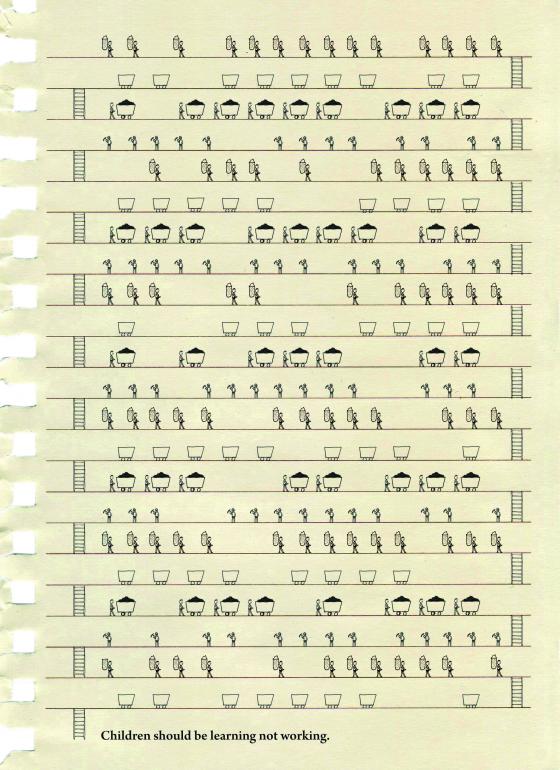 Children should be learning not working.